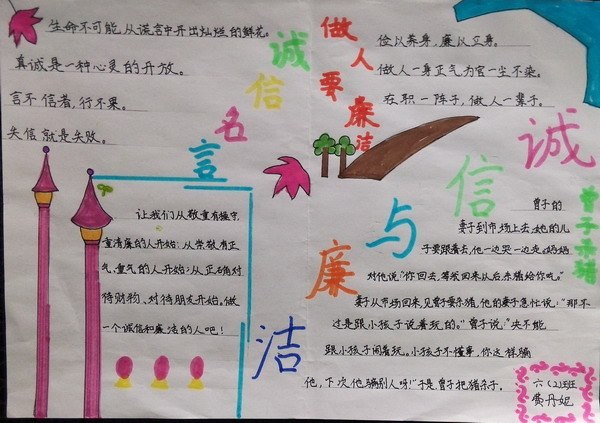 生命不可能从谎言中开出灿烂的鲜花。
真诚是一种心灵的开放。
言不信者，行不果。
失信就是失败。
诚信名言
做人要廉洁
俭以养身，廉以立身。
做人一身正气为官一尘不染。
在职一阵子，做人一辈子。
诚信与廉洁
让我们从敬重有操守，
重清廉的人开始；从学敬有正
气，重气的人开始；从正确对
待财物，对待朋友开始。做
一个诚信和廉洁的人吧！
曾子杀猪
曾子的
妻子到市场上去，她的儿
子要跟着去，他一边哭一边走。妈妈
对他说“你回去，等我回来以后，杀猪给你吃。”
妻子从市场回来，见曾子要杀猪，他的妻子急忙说：“那不
过是跟小孩子说着玩的。”曾子说：“决不能
跟小孩子闹着玩。小孩子不懂事，你这样骗
他，下次他骗别人呀！”于是曾子把猪杀了。
六（2）班
黄丹妮